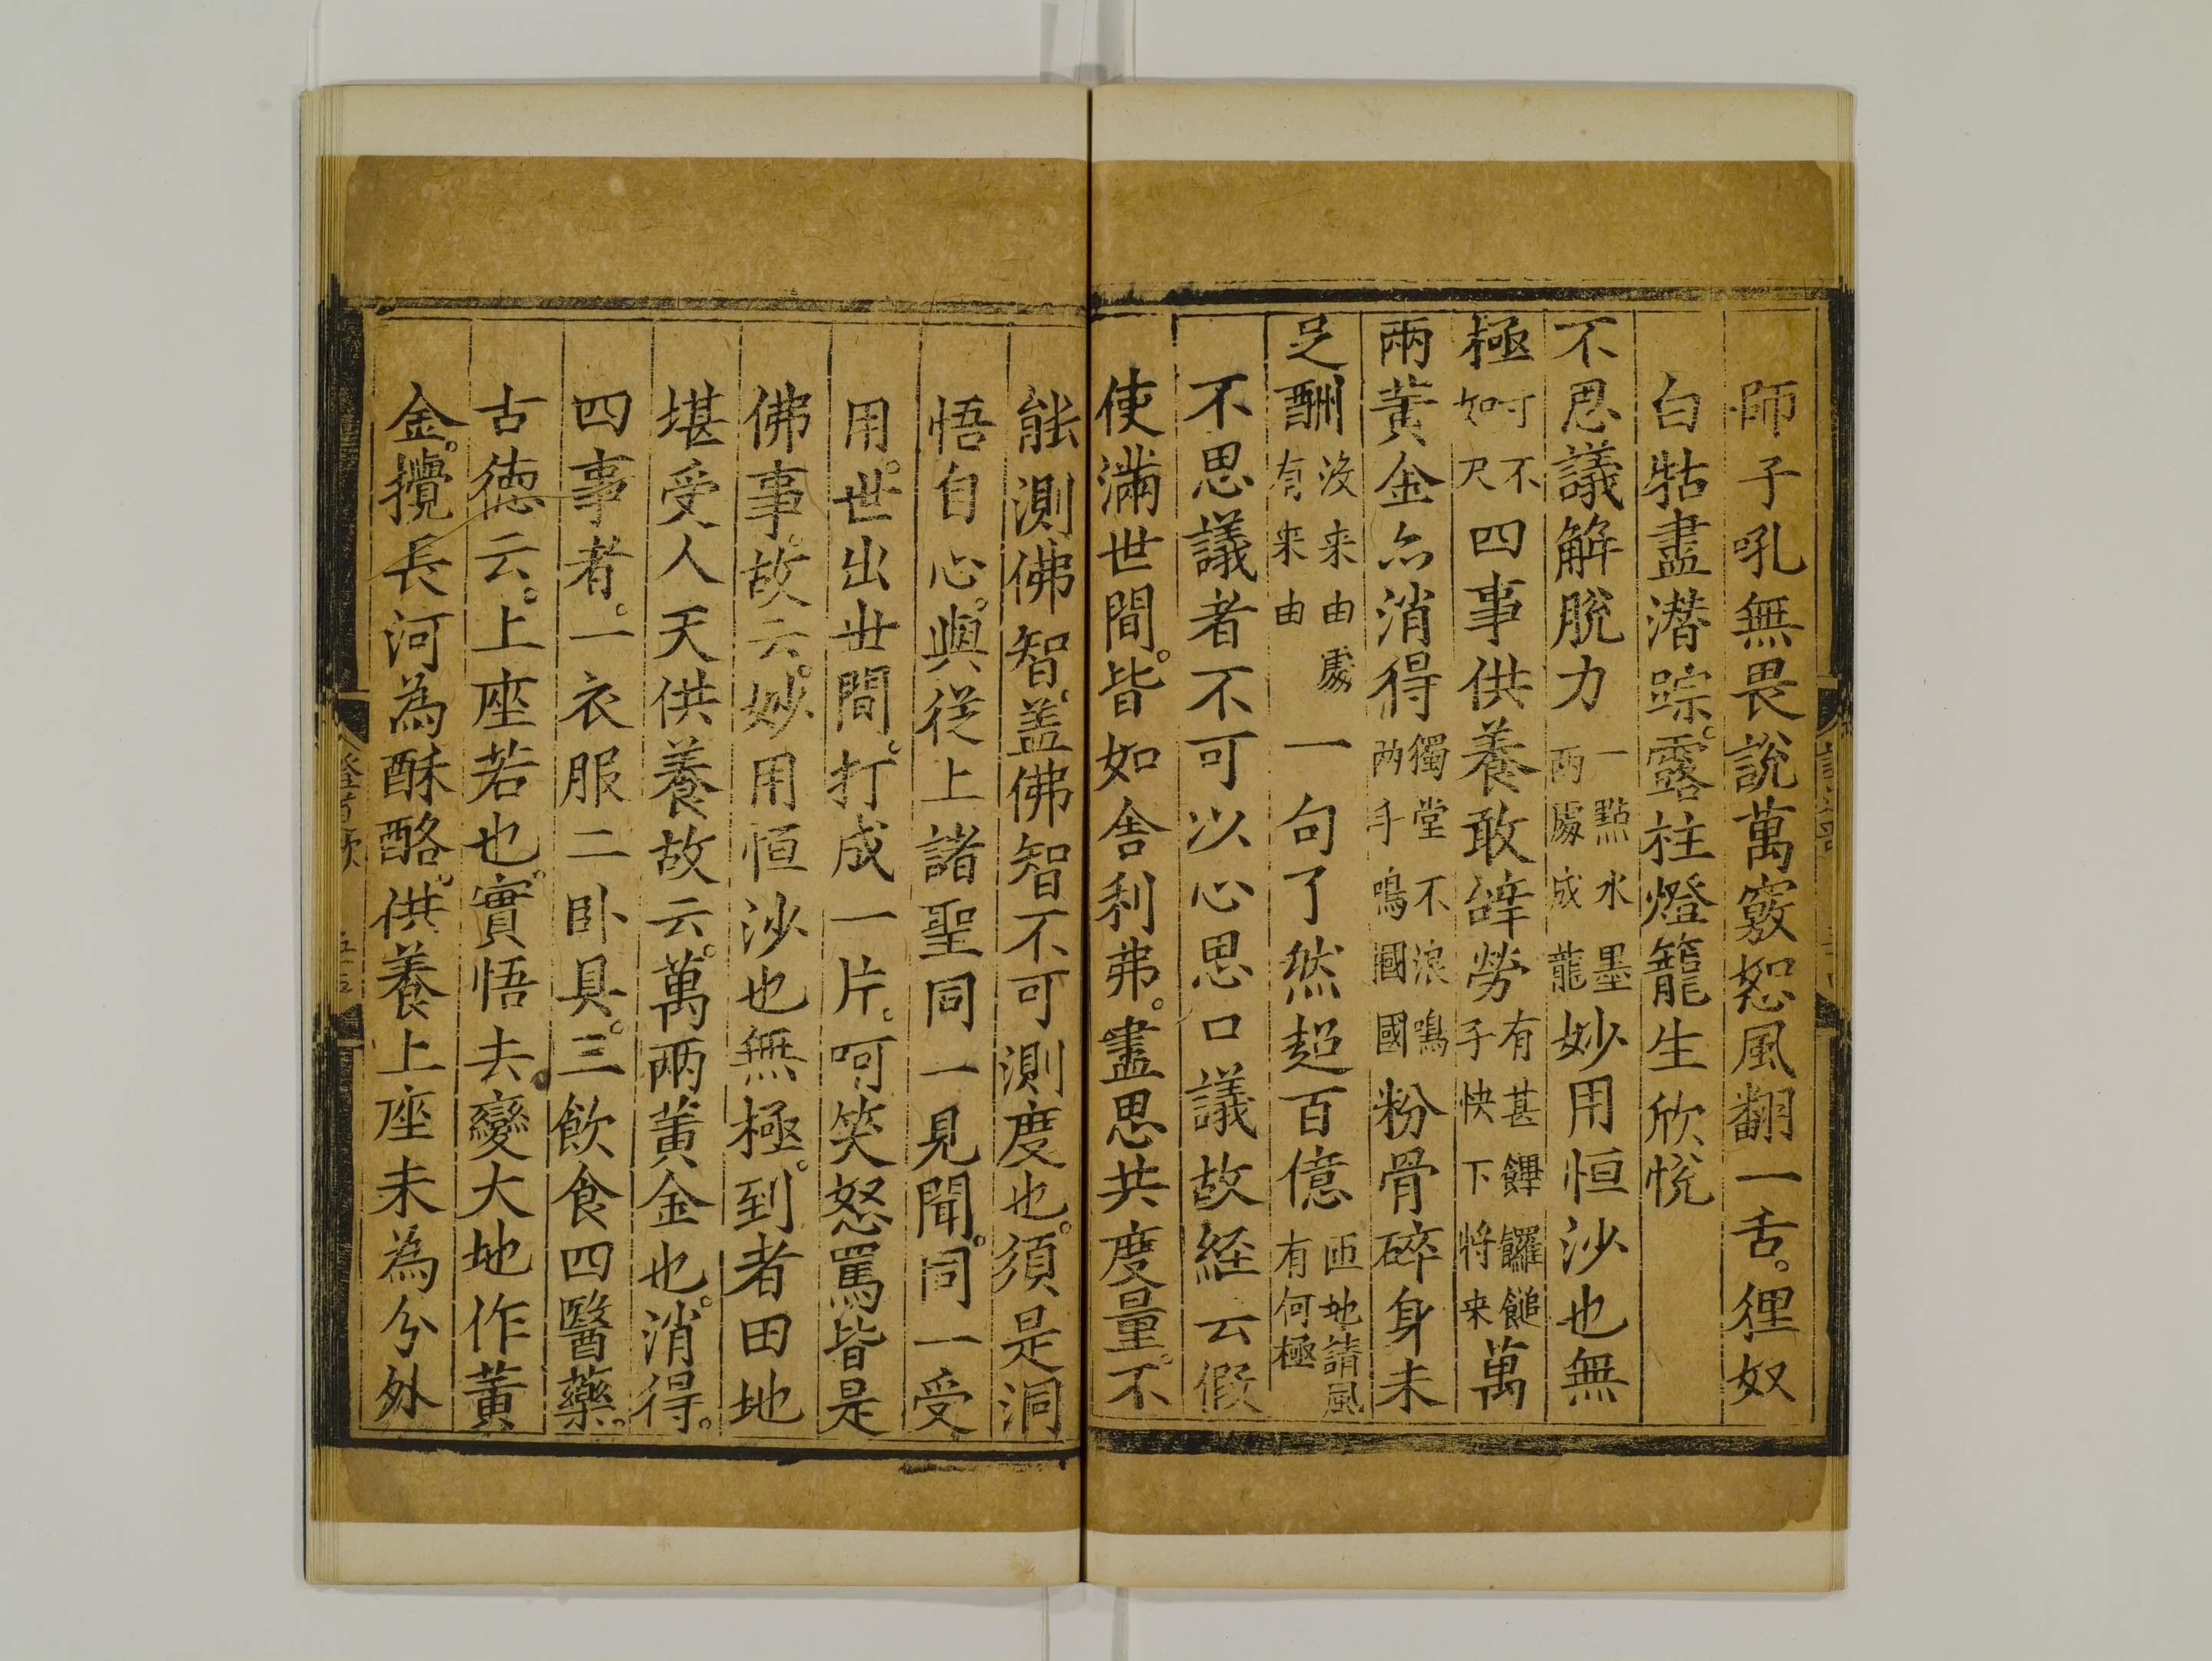 師子吼無畏說萬竅怒風翻一舌。狸奴
白牯盡潛踪。露柱燈籠生欣悅
不思議解脫力一點水墨兩處成龍妙用恒沙也無
極可不如尺四事供養敢辝勞有甚饆饠䭔手快下將来萬
兩黃金亦消得獨掌不浪鳴兩手鳴國國粉骨碎身未
足酬沒来由處有来由一句了然超百億匝地請風有何極
不思議者不可以心思口議故経云假
使滿世間。皆如舍利弗。盡思共度量。不
能測佛智。盖佛智不可測度也。須是洞
悟自心。與從上諸聖同一見聞。同一受
用。世出世間。打成一片。呵笑怒罵皆是
佛事。故云。妙用恒沙也無極。到者田地
堪受人天供養故云。萬兩黃金也。消得。
四事者。一衣服二卧具。三飲食四醫藥。
古德云。上座若也。實悟去。變大地作黃
金。攪長河為酥酪。供養上座未為分外